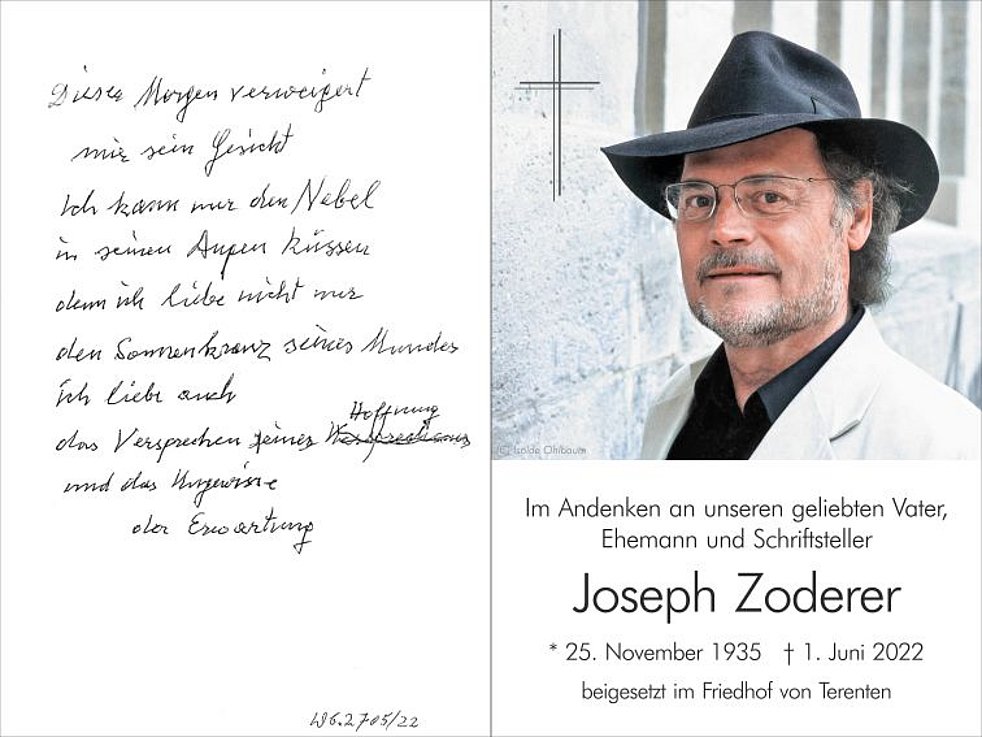 Dieser Morgen verweigert
mir sein Gesicht
Ich kann nur den Nebel
in seinen Augen küssen
denn ich liebe nicht nur
den Sonnenkranz seines Mundes
Ich liebe auch
Hoffnung
das Versprechen seines Versprechens
und das Ungewisse
der Erwartung
27 05/22
(C) Isolde Ohlbaum
Im Andenken an unseren geliebten Vater,
Ehemann und Schriftsteller
Joseph Zoderer
* 25. November 1935 † 1. Juni 2022
beigesetzt im Friedhof von Terenten